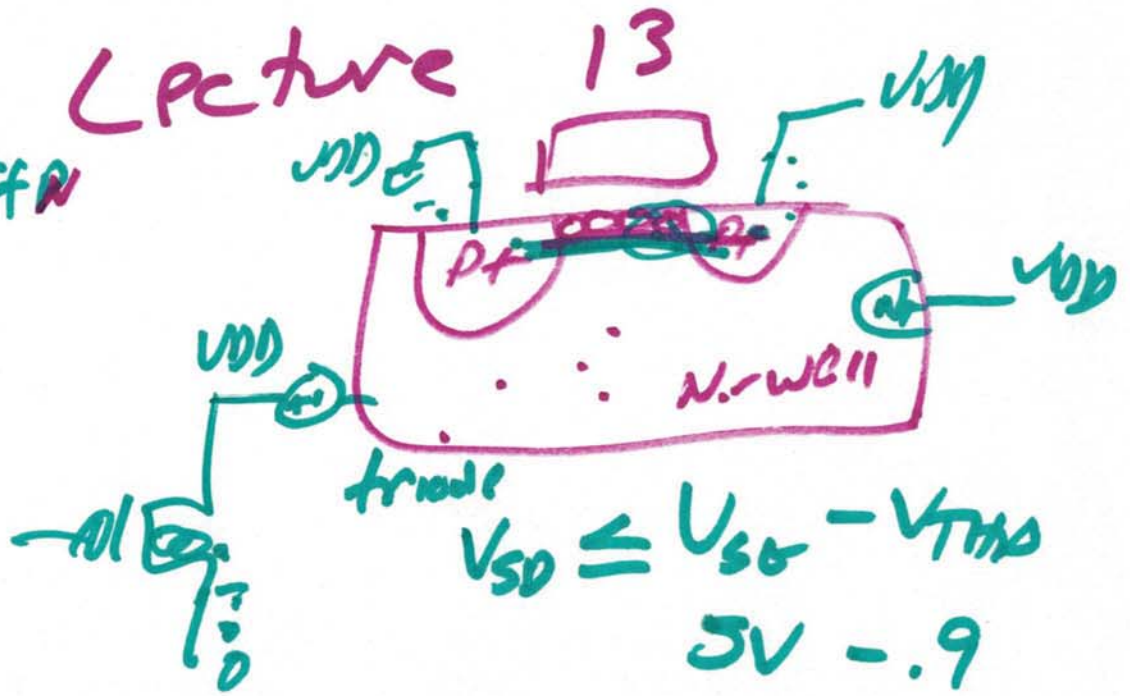 Lecture 13
VDD
VDD
P+
P+
n+
VDD
VDD
N-well
triode
VSD ≤ VSG - VTHP
5V - .9
0